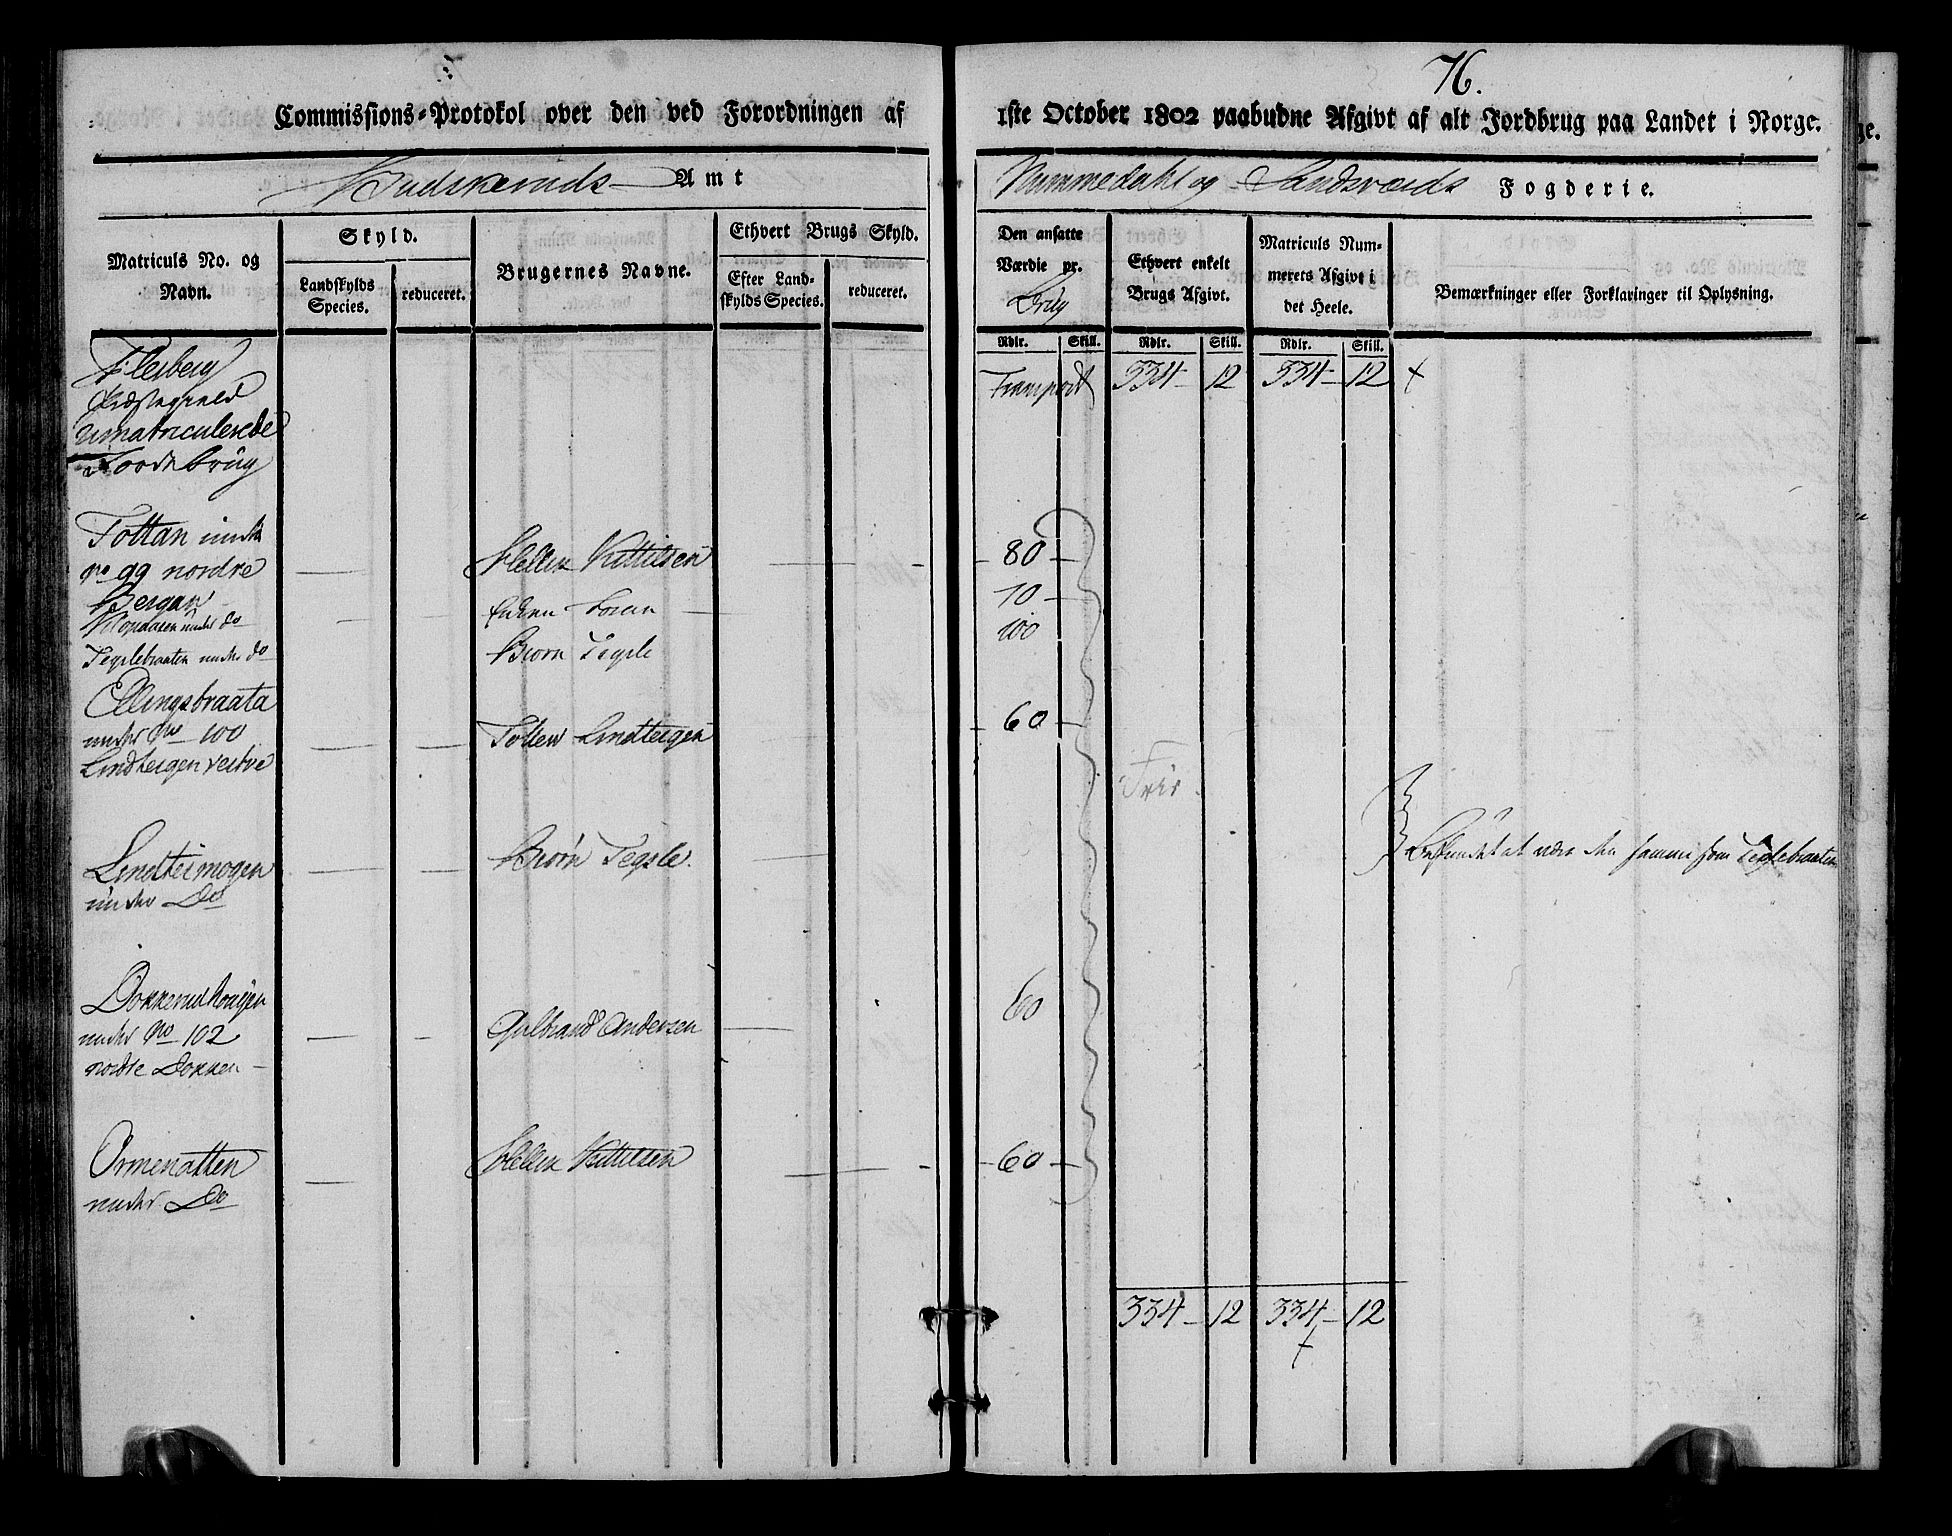 76.
Commissions-Protokol over den ved Forordningen af 1ste October 1802 paabudne Afgivt af alt Jordbrug paa Landet i Norge.
Budskeruds Amt
Nummedahl og Sandsværds Fogderie.
Matriculs No. og Navn.
Skyld.
Landskylds Species.
reduceret.
Brugernes Navne.
Ethvert Brugs Skyld.
Efter Landskylds Species.
reduceret.
Den ansatte Værdie pr. Brug
Ethvert enkelt Brugs Afgivt.
Matriculs Nummerets Afgivt i det Heele.
Bemærkninger eller Forklaringer til Oplysning.
Rdlr. Skill. Rdlr. Skill. Rdlr. Skill.
Flesberg
Præstegield
Umatriculerede
Jordebrug
Transport 334 - 12 334 - 12 +
Tottan under
No 99 nordre
Bergan
Hellik Kittilsen 80 -
under do 10 -
Teyslebraaten under do Biørn Teysle 100
Ellingsbraata
under No 100
Lindteigen vestre
Totten Lindteigen 60 -
Frie
Lindteimogen
under Do
Biørn Teysle.
Befundet at være den samme som Teyslebraaten
Dokkerudhougen
under No 102
nordre Dokken -
Gulbrand Andersen 60
Ormenatten
under Do
Hellik Kittilsen - 60 -
334 - 12 334 - 12
+